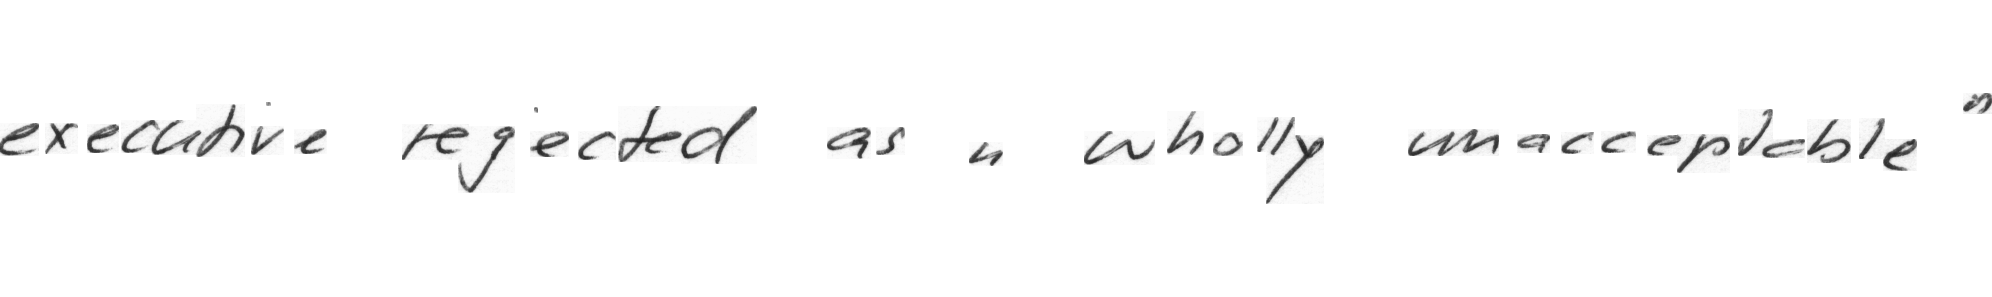 executive rejected as " wholly unacceptable "